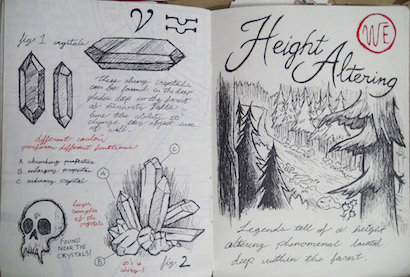 fig. 1 crystals
these shiny crystals
can be found in the deep
glades deep in the forest
have the ability to
change the object size
at will
different colors
perform different functions
A shrinking properties
B enlarging properties
C ordinary crystal
C
A
B
larger
samples of
the
crystals
FOUND
NEAR THE
CRYSTALS!
it's a
shiny!
fig. 2
Height
Altering
WE
Legends tell of a height
altering phenomenal located
deep within the forest.